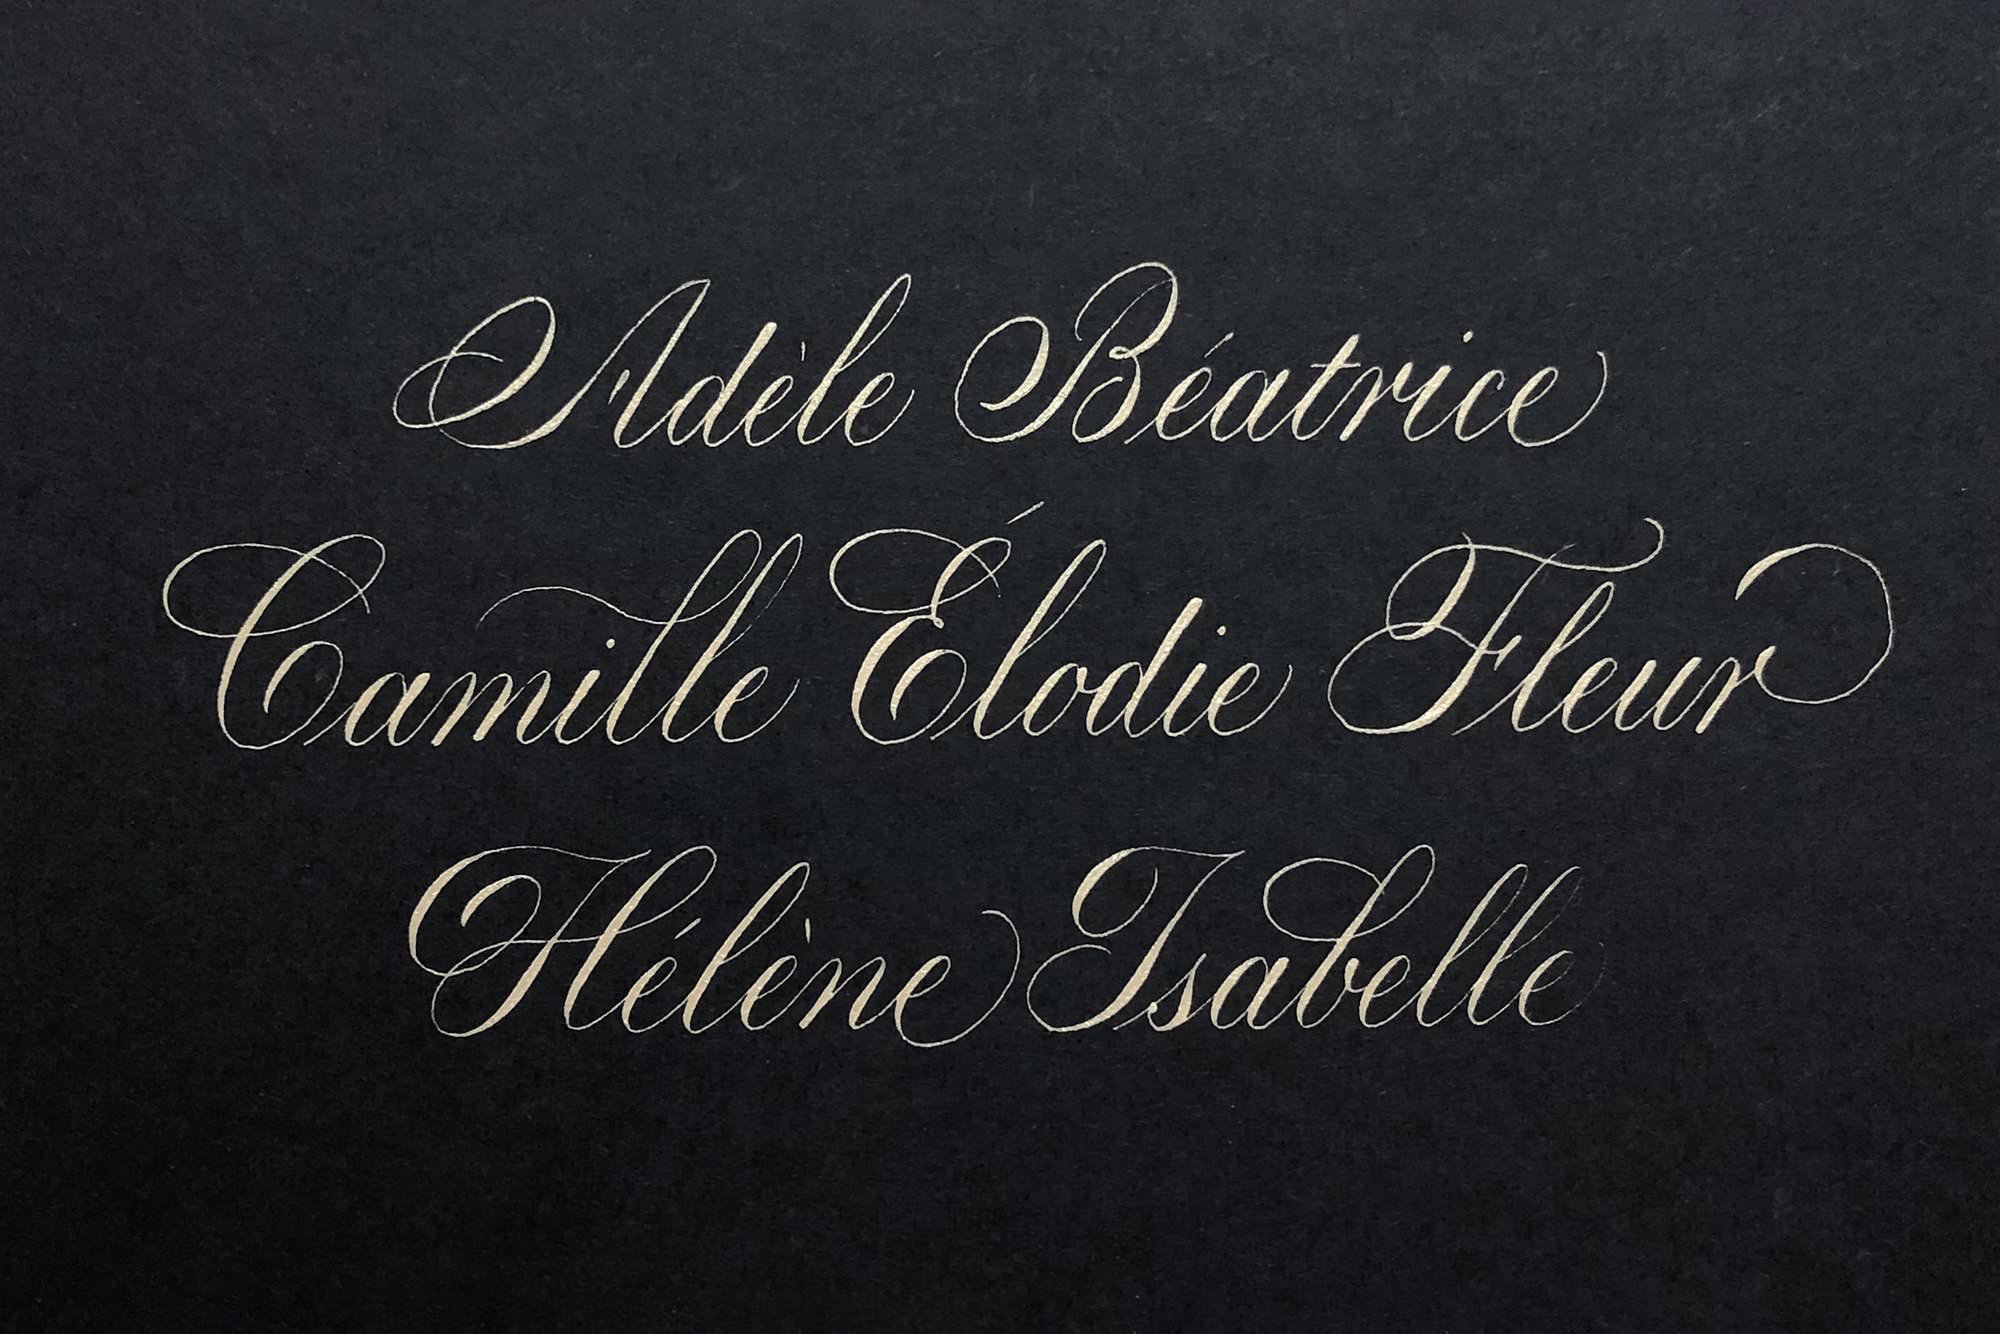 Adèle Béatrice
Camille Élodie Fleur
Hélène Isabelle